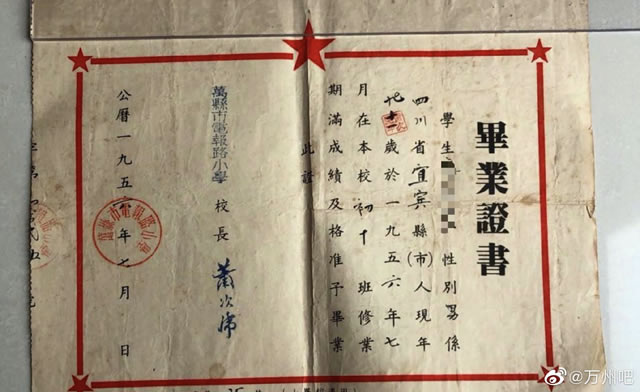 畢業證書
學生 性別男係
四川省宜賓縣(市)人現年
十一歲於一九五六年七
月在本校初十班修業
期滿成績及格准予畢業
此證
萬縣市電報路小學 校長 蕭次席
公曆一九五六年七月 日
萬縣市電報路小學
@万州吧